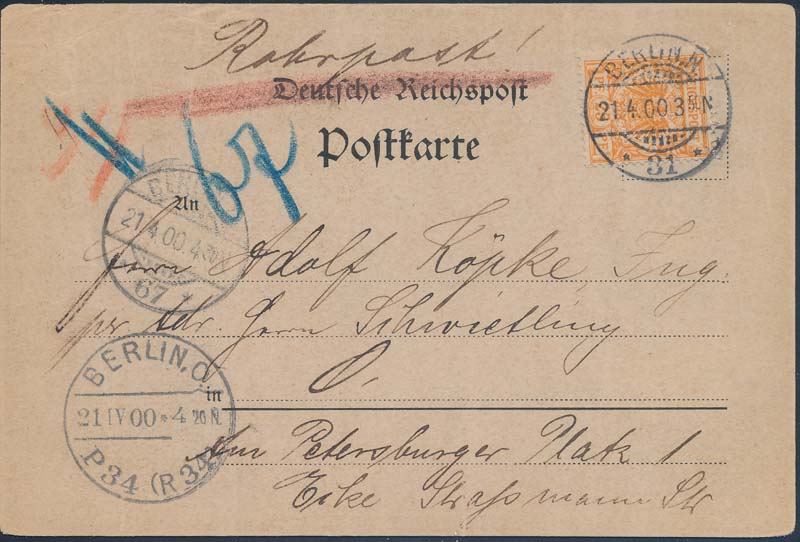 Rohrpost!
Deutsche Reichspost
Postkarte
BERLIN, N.
21.4.00 3 50 N.
* 31 *
67
An
BERLIN
21.4.00 4 30
67
Herrn Adolf Köpke, Ing.
per Adr. Herrn Schwietling
O.
in
BERLIN, O.
21 IV 00 * 4 20 N.
P 34 (R 34)
Am Petersburger Platz 1
Ecke Straßmann Str